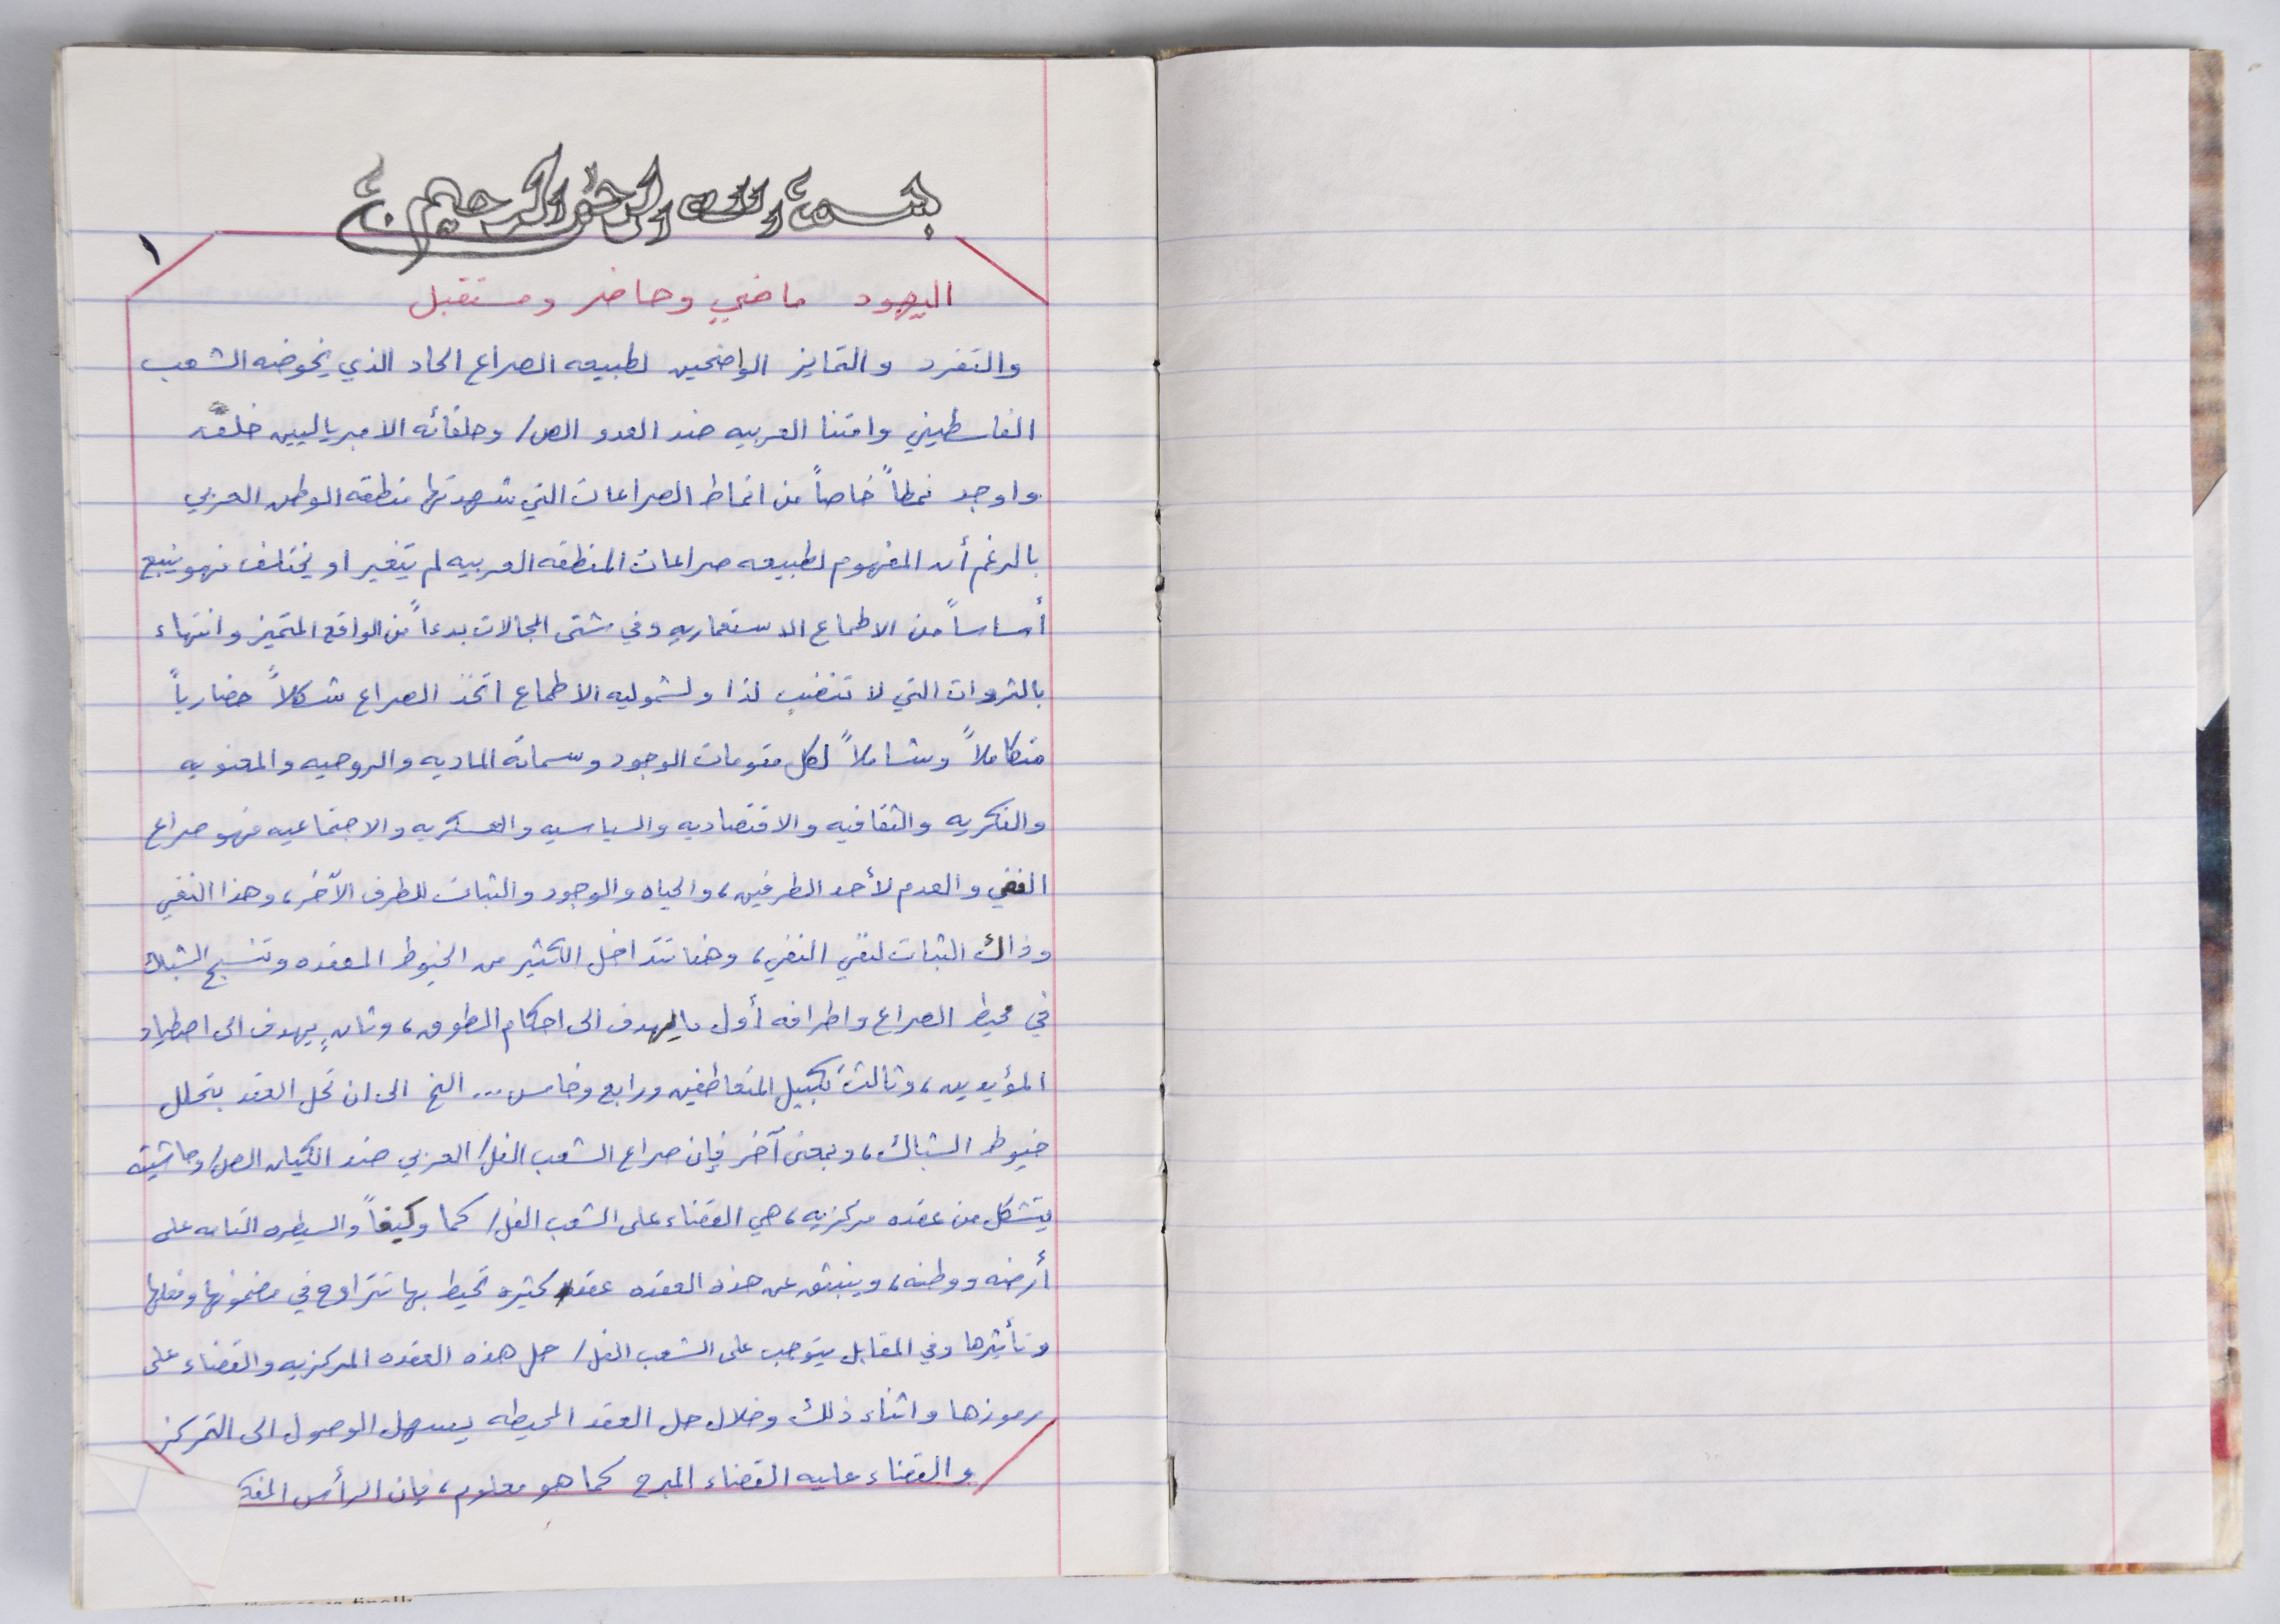 بسم الله الرحمن الرحيم
١
اليهود ماضي وحاضر ومستقبل
والتفرد والتمايز الواضحين لطبيعه الصراع الحاد الذي يخوضه الشعب
الفلسطيني وامتنا العربيه ضد العدو الص/ وحلفائه الامبرياليين خلق
واوجد نمطاً خاصاً من انماط الصراعات التي شهدتها منطقه الوطن العربي
بالرغم أن المفهوم لطبيعه صراعات المنطقه العربيه لم يتغير او يختلف فهو ينبع
أساساً من الاطماع الاستعماريه وفي شتى المجالات بدءاً من الواقع المتميز وانتهاء
بالثروات التي لا تنضب لذا ولشموليه الاطماع اتخذ الصراع شكلاً حضارياً
متكاملاً وشاملاً لكل مقومات الوجود وسماته الماديه والروحيه والمعنويه
والفكريه والثقافيه والاقتصاديه والسياسيه والعسكريه والاجتماعيه فهو صراع
النفي والعدم لأحد الطرفين، والحياه والوجود والثبات للطرف الآخر، وهذا النفي
وذاك الثبات لنفي النفي، وهنا تتداخل الكثير من الخيوط المعقده وتنسج الشباك
في محيط الصراع واطرافه أول ما يهدف الى احكام الطوق، وثانٍ يهدف الى اصطياد
المؤيدين، وثالث تكبيل المتعاطفين ورابع وخامس... الخ الى ان تحل العقد بتحلل
خيوط الشباك، وبمعنى آخر فإن صراع الشعب الفل/ العربي ضد الكيان الص/ وحاشيته
يتشكل من عقده مركزيه، هي القضاء على الشعب الفل/ كما وكيفاً والسيطره التامه على
أرضه ووطنه، وينبثق عن هذه العقده عقد كثيره تحيط بها تتراوح في مضمونها وفعلها
وتأثيرها وفي المقابل يتوجب على الشعب الفل/ حل هذه العقده المركزيه والقضاء على
رموزها واثناء ذلك وخلال حل العقد المحيطه يسهل الوصول الى التمركز
والقضاء عليه القضاء المبرح كما هو معلوم، فإن الرأس